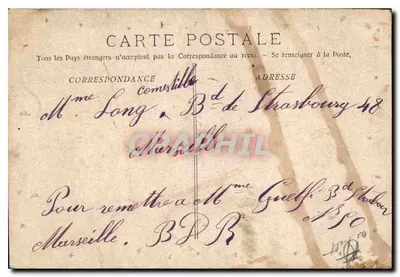 CARTE POSTALE
Tous les Pays étrangers n'acceptent pas la Correspondance au recto. - Se renseigner à la Poste.
CORRESPONDANCE ADRESSE
comestible
Mme Long, Bd de Strasbourg 48
Marseille
CPAPHIL
Pour remettre a Mme Guelfi Bd Strasbour
N° 50
Marseille. BDR